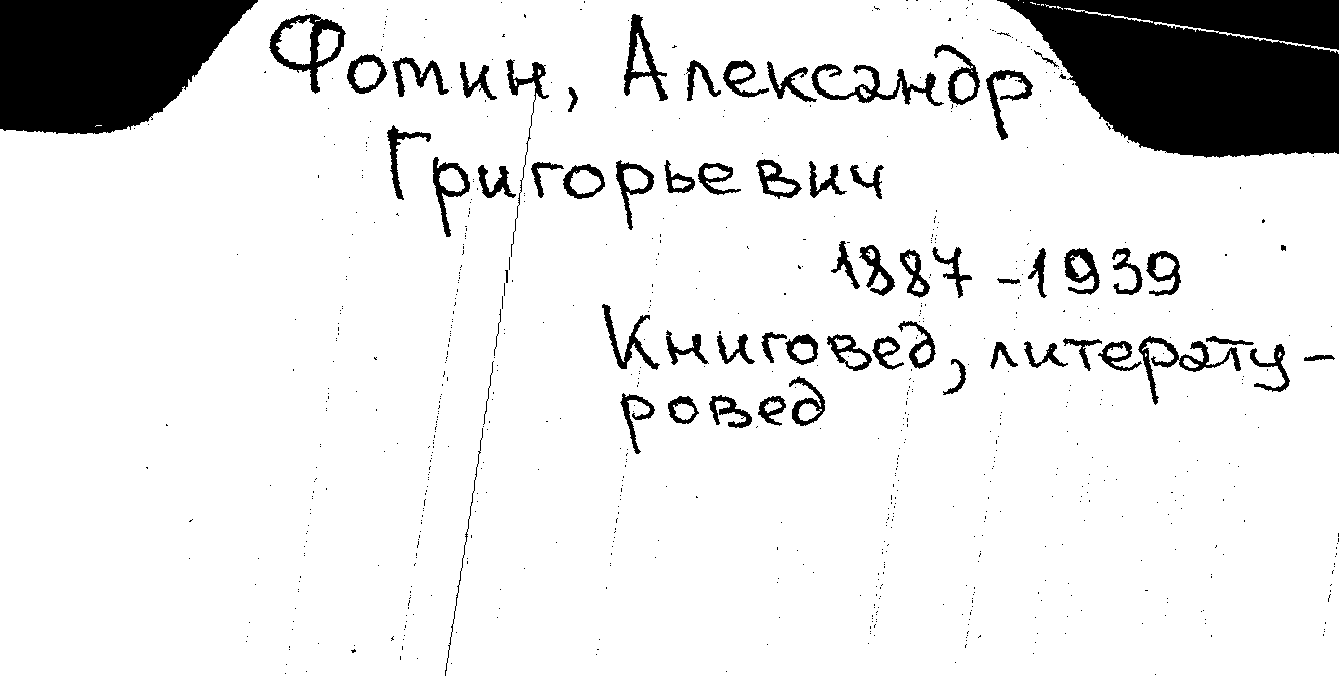 Фомин, Александр
Григорьевич
1887-1939
Книговед, литерату-
ровед